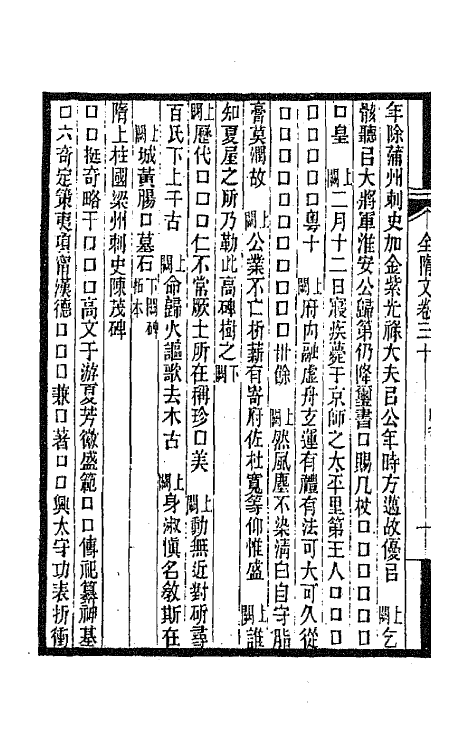 全隋文卷三十
十
年除蒲州刺史加金紫光祿大夫㠯公年時方邁故優㠯上闕乞
骸聽㠯大將軍淮安公歸第仍降璽書□賜几杖□□□□□□
□皇上闕二月十二日寢疾薨于京師之太平里第王人□□□
□□□□粵十上闕府內融虛舟玄運有禮有法可大可久從
□□□□□□□□卅餘上闕然風塵不染淸白自守脂
膏莫潤故上闕公業不亡析薪有寄府佐杜寬等仰惟盛上闕誰
知夏屋之所乃勒此高碑樹之下闕
上闕歷代□□□仁不常厥土所在稱珍□美上闕動無近對研尋
百氏下上千古上闕命歸火謳歌去木古上闕身淑愼名敎斯在
上闕城黃腸□墓石下闕碑拓本
隋上柱國梁州刺史陳茂碑
□□挺奇略于□□□高文于游夏芳徽盛範□□傳祀纂神基
□六奇定策夷項甯漢德□□□兼□著□□興太守功表折衝